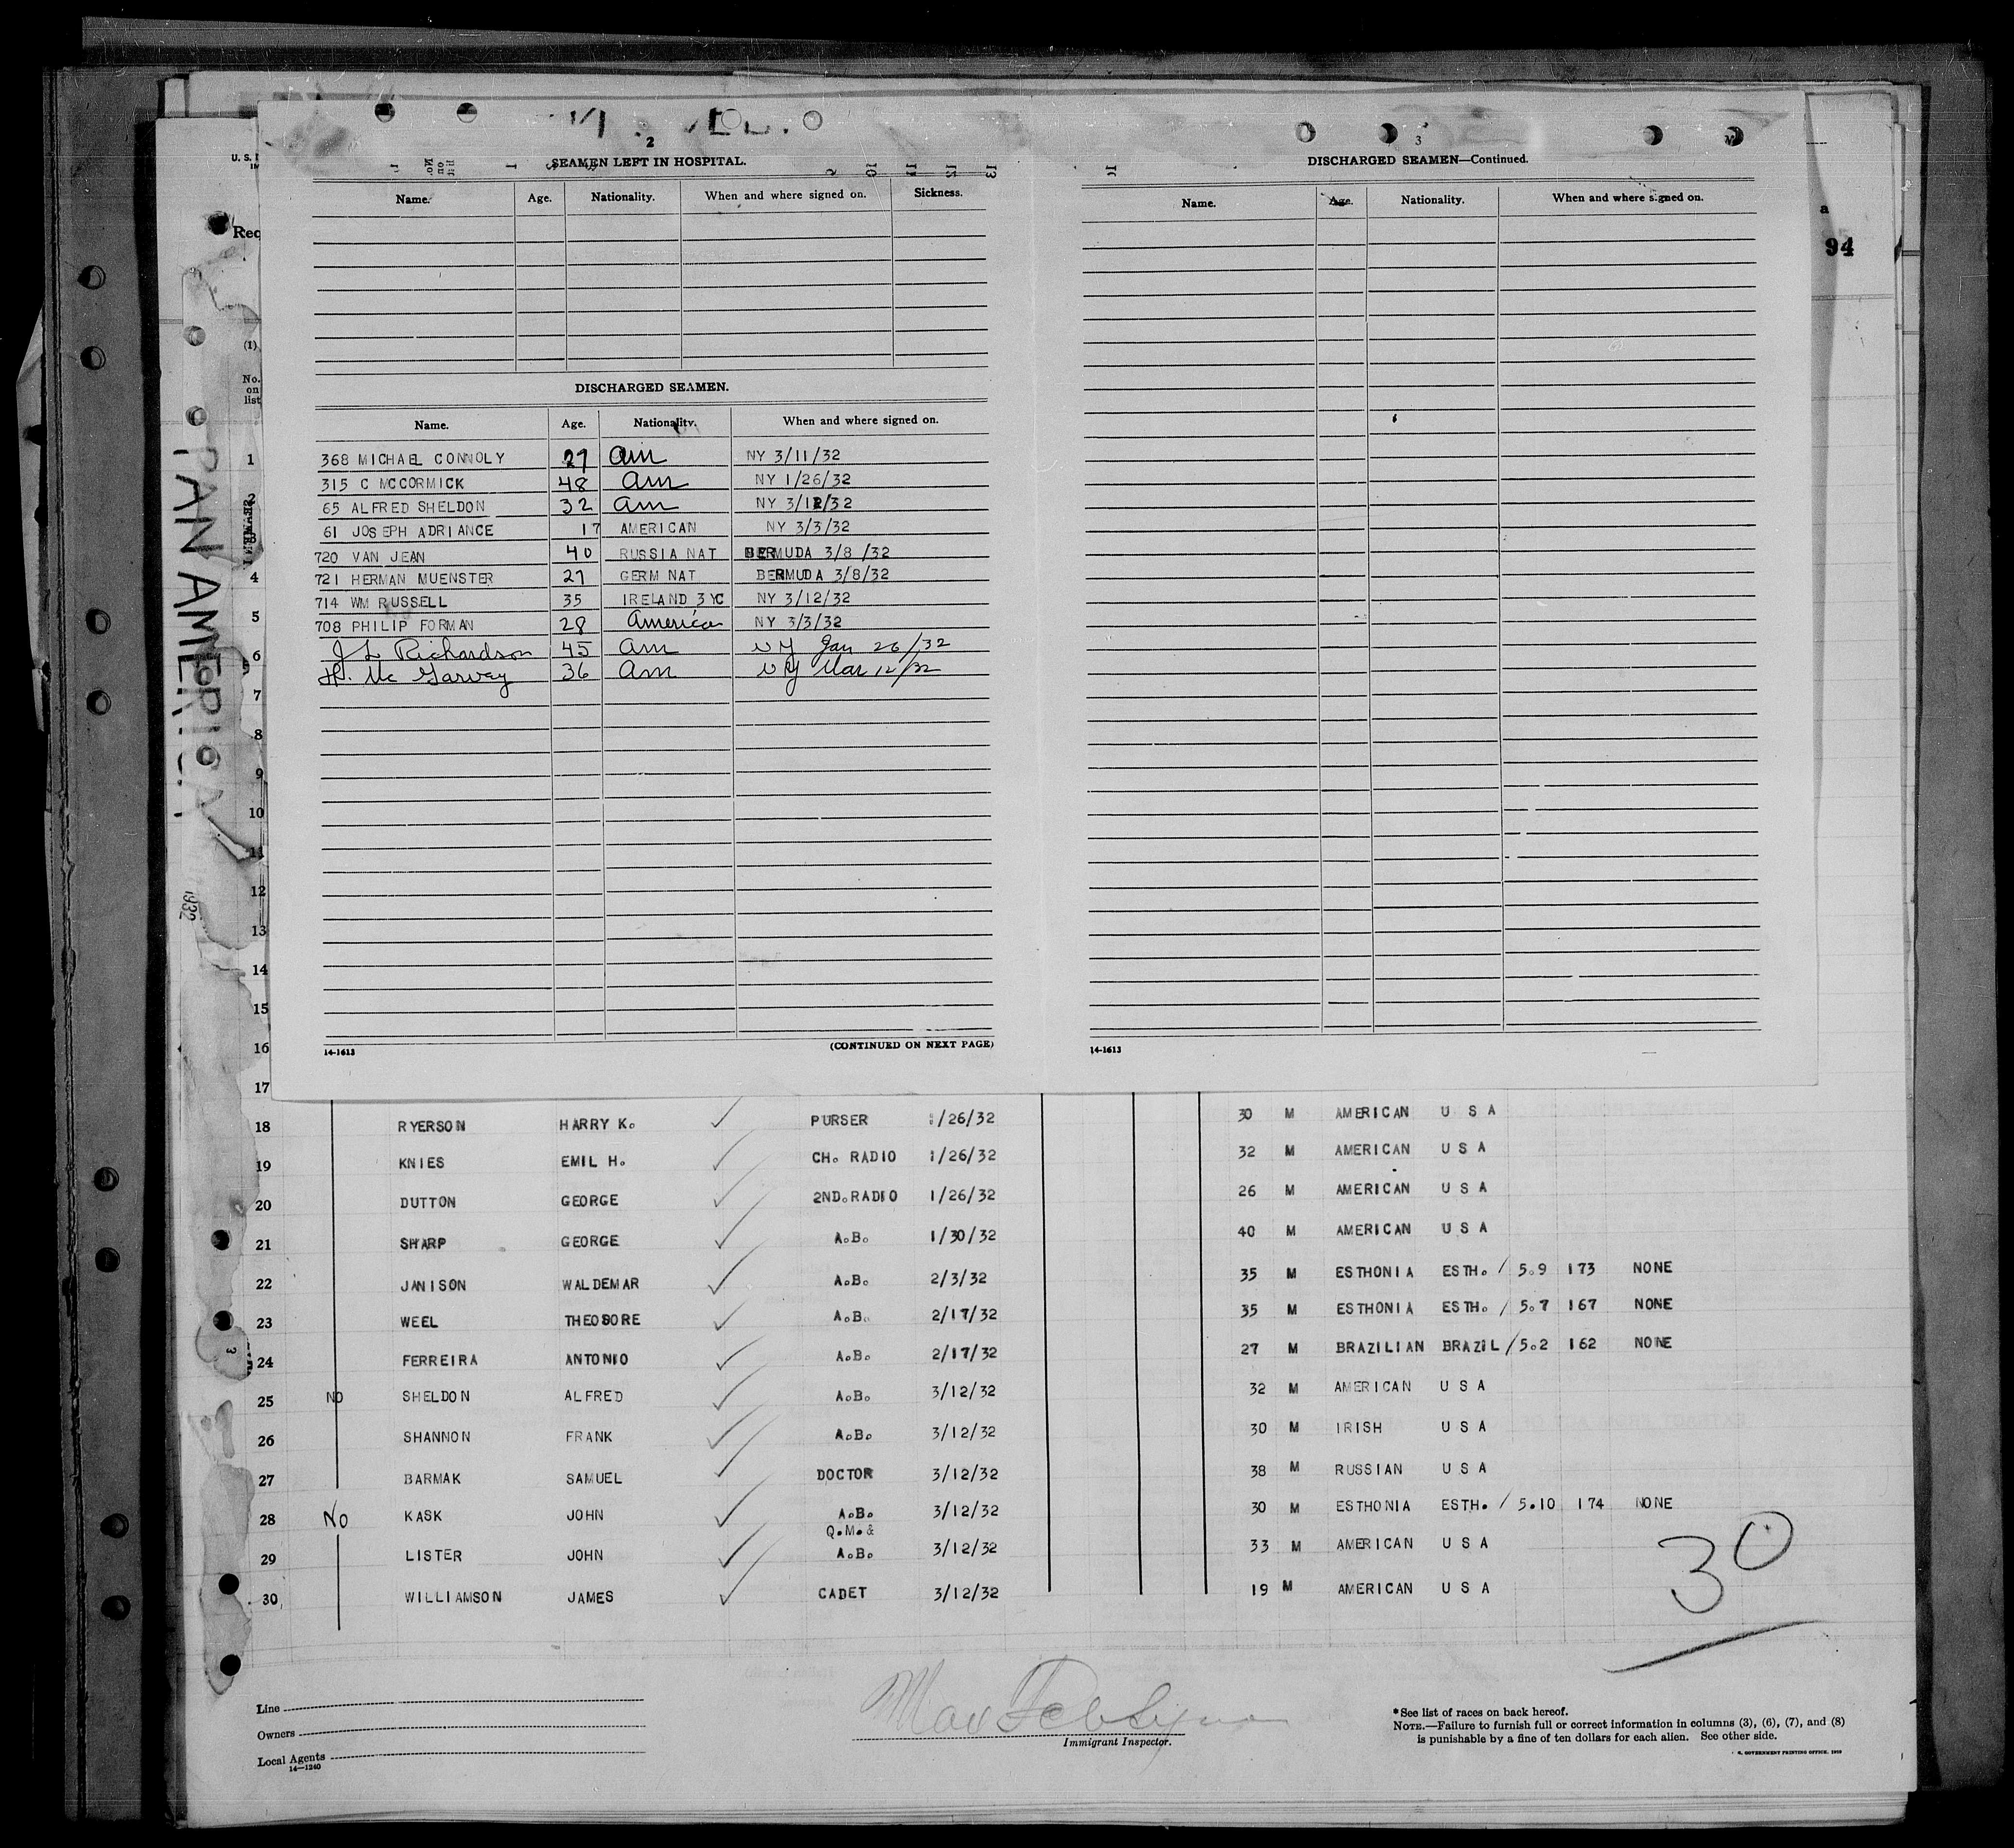 2
SEAMEN LEFT IN HOSPITAL.
Name. Age. Nationality. When and where signed on. Sickness.
DISCHARGED SEAMEN.
Name. Age. Nationality. When and where signed on.
368 MICHAEL CONNOLY 27 Am NY 3/11/32
315 C MCCORMICK 48 Am NY 1/26/32
65 ALFRED SHELDON 32 Am NY 3/12/32
61 JOSEPH ADRIANCE 17 AMERICAN NY 3/3/32
720 VAN JEAN 40 RUSSIA NAT BERMUDA 3/8/32
721 HERMAN MUENSTER 27 GERM NAT BERMUDA 3/8/32
714 WM RUSSELL 35 IRELAND 3 YC NY 3/12/32
708 PHILIP FORMAN 28 America NY 3/3/32
J L Richardson 45 Am NY Jan 26/32
H. Mc Garvey 36 Am NY Mar 12/32
14-1613 (CONTINUED ON NEXT PAGE)
3
DISCHARGED SEAMEN—Continued.
Name. Age. Nationality. When and where signed on.
14-1613
U. S.
Req
94
(1)
No. on list
PAN AMERICA
1932
1
2
3
4
5
6
7
8
9
10
11
12
13
14
15
16
17
18 RYERSON HARRY K. PURSER 1/26/32 30 M AMERICAN U S A
19 KNIES EMIL H. CH. RADIO 1/26/32 32 M AMERICAN U S A
20 DUTTON GEORGE 2ND. RADIO 1/26/32 26 M AMERICAN U S A
21 SHARP GEORGE A.B. 1/30/32 40 M AMERICAN U S A
22 JANISON WALDEMAR A.B. 2/3/32 35 M ESTHONIA ESTH. / 5.9 173 NONE
23 WEEL THEODORE A.B. 2/17/32 35 M ESTHONIA ESTH. / 5.7 167 NONE
24 FERREIRA ANTONIO A.B. 2/17/32 27 M BRAZILIAN BRAZIL / 5.2 162 NONE
25 NO SHELDON ALFRED A.B. 3/12/32 32 M AMERICAN U S A
26 SHANNON FRANK A.B. 3/12/32 30 M IRISH U S A
27 BARMAK SAMUEL DOCTOR 3/12/32 38 M RUSSIAN U S A
28 No KASK JOHN A.B. 3/12/32 30 M ESTHONIA ESTH. / 5.10 174 NONE
29 LISTER JOHN Q.M. & A.B. 3/12/32 33 M AMERICAN U S A
30 WILLIAMSON JAMES CADET 3/12/32 19 M AMERICAN U S A
30
Line
Owners
Local Agents
14—1240
Immigrant Inspector.
*See list of races on back hereof.
NOTE.—Failure to furnish full or correct information in columns (3), (6), (7), and (8)
is punishable by a fine of ten dollars for each alien. See other side.
GOVERNMENT PRINTING OFFICE